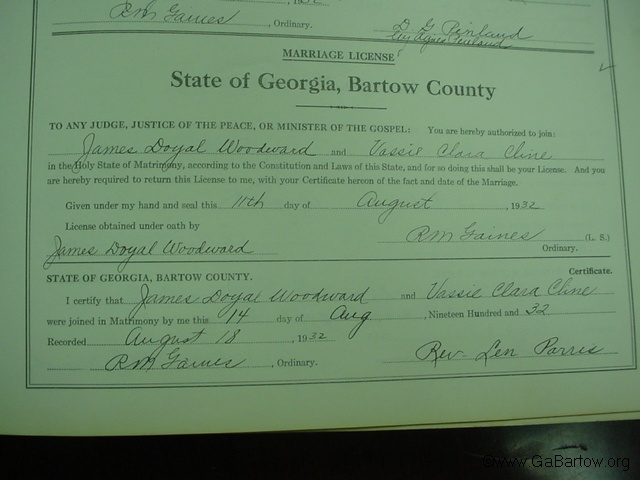 , 192
RM Gaines , Ordinary. D. G. Pinland
MARRIAGE LICENSE
State of Georgia, Bartow County
TO ANY JUDGE, JUSTICE OF THE PEACE, OR MINISTER OF THE GOSPEL: You are hereby authorized to join:
James Doyal Woodward and Vassie Clara Cline
in the Holy State of Matrimony, according to the Constitution and Laws of this State, and for so doing this shall be your License. And you
are hereby required to return this License to me, with your Certificate hereon of the fact and date of the Marriage.
Given under my hand and seal this 11th day of August , 1932
License obtained under oath by RM Gaines (L. S.)
James Doyal Woodward Ordinary.
STATE OF GEORGIA, BARTOW COUNTY. Certificate.
I certify that James Doyal Woodward and Vassie Clara Cline
were joined in Matrimony by me this 14 day of Aug , Nineteen Hundred and 32
Recorded August 18 , 1932
RM Gaines , Ordinary. Rev- Len Parris
©www.GaBartow.org